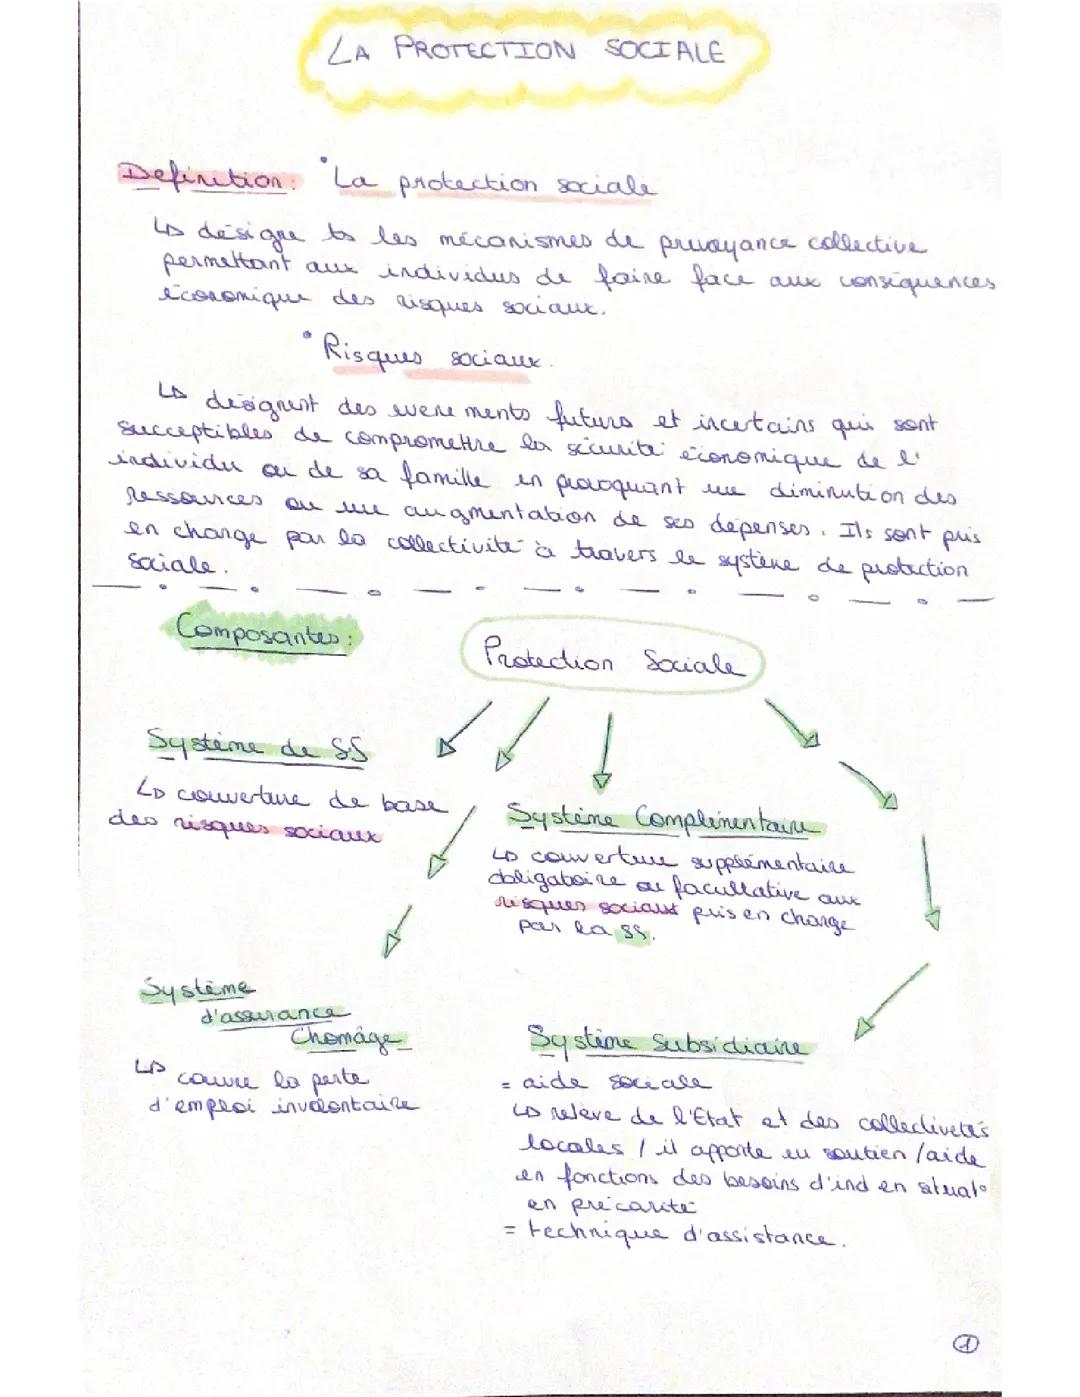 LA PROTECTION SOCIALE
Definition: • La protection sociale
↳ désigne ts les mécanismes de prevoyance collective
permettant aux individus de faire face aux conséquences
économique des risques sociaux.
• Risques sociaux.
↳ désignent des evenements futurs et incertains qui sont
succeptibles de compromettre la sécurité économique de l'
individu ou de sa famille en provoquant une diminution des
ressources ou une augmentation de ses dépenses. Ils sont pris
en charge par la collectivité à travers le système de protection
sociale.
Composantes:
Protection Sociale
Système de SS
↳ couverture de base
des risques sociaux
Système Complémentaire
↳ couverture supplémentaire
obligatoire ou facultative aux
risques sociaux pris en charge
par la SS.
Système
d'assurance
Chomâge
↳ couvre la perte
d'emploi involontaire
Système Subsidiaire
= aide sociale
↳ relève de l'Etat et des collectivetés
locales / il apporte un soutien /aide
en fonctions des besoins d'ind en situat°
en précarité
= technique d'assistance.
1